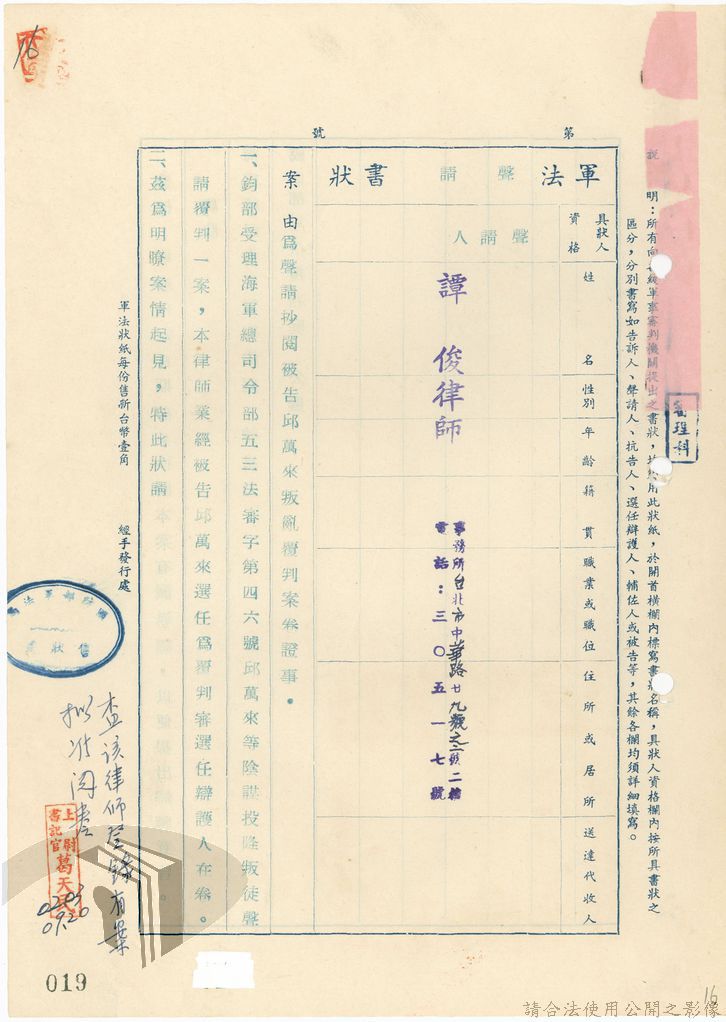 第　號
說　明：所有向各級軍事審判機關提出之書狀，均須用此狀紙，於開首橫欄內標寫書狀名稱，具狀人資格欄內按所具書狀之
區分，分別書寫如告訴人、聲請人、抗告人、選任辯護人、輔佐人或被告等，其餘各欄均須詳細填寫。
審理科
軍法聲請書狀
具狀人
資格
姓名
性別
年齡
籍貫
職業或職位
住所或居所
送達代收人
聲請人
譚俊律師
事務所台北市中華路廿九號之二號二樓
電話：三〇五一七號
案由為聲請抄閱被告邱萬來叛亂覆判案卷證事。
一、鈞部受理海軍總司令部五三法審字第四六號邱萬來等陰謀投降叛徒聲
請覆判一案，本律師業經被告邱萬來選任為覆判審選任辯護人在卷。
二、茲為明瞭案情起見，特此狀請
軍法狀紙每份售新台幣壹角　經手發行處
查該律師登錄有案
擬准閱卷
上尉
書記官
葛天
0203
0920
16
019
16
請合法使用公開之影像